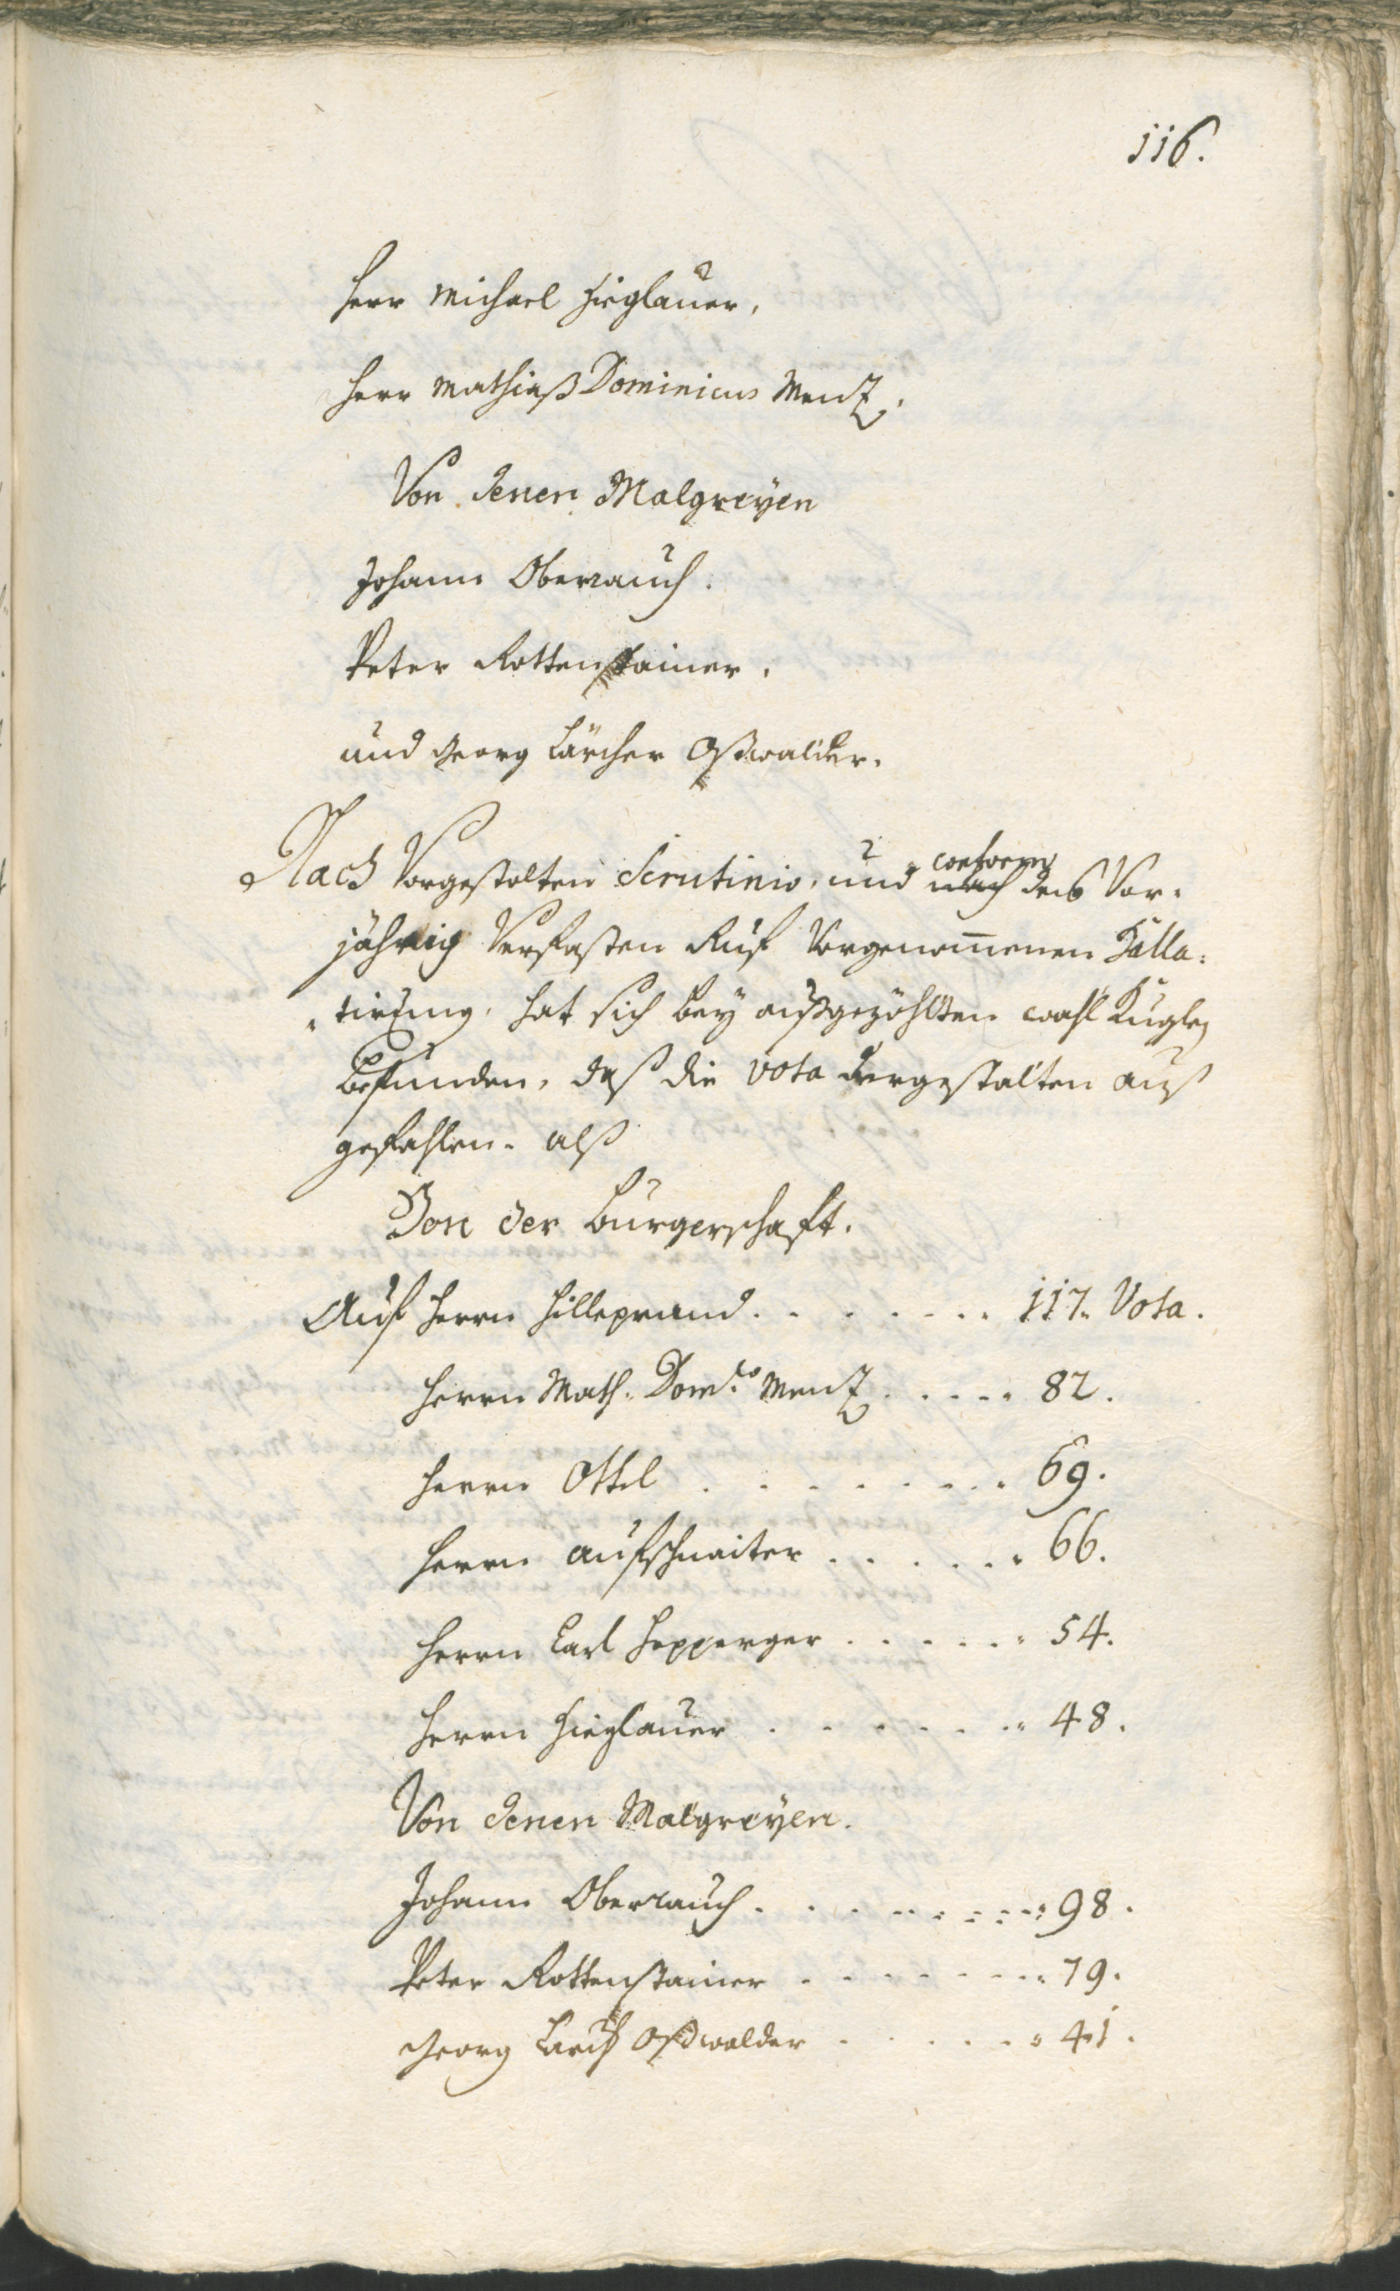 116.
Herr Michael Hieglauer,
Herr Mathiaß Dominicus Menz.
Von denen Malgreyen
Johann Oberrauch.
Peter Rottenstainer.
und Georg Lärcher Oßwalder.
Nach Vorgestelten Scrutinio, und conform
nach des Vor-
jährig Verfasten Ruf Vorgenommenen
hat sich bey außgezöhlten wahl Kuglen
befunden, daß die vota dergestalten auß
gefahlen. alß
Von der Burgerschaft.
Auf Herrn Hilleprand . . . . . . . 117. Vota.
Herrn Math. Dom.co Menz . . . . . 82.
Herrn Ottel . . . . . . . . 69.
Herrn Aufschnaiter . . . . . . 66.
Herrn Carl Hepperger . . . . . . 54.
Herrn Hieglauer . . . . . . . 48.
Von denen Malgreyen.
Johann Oberrauch . . . . . . . . 98.
Peter Rottenstainer . . . . . . . 79.
Georg Larch Oßwalder . . . . . . 41.